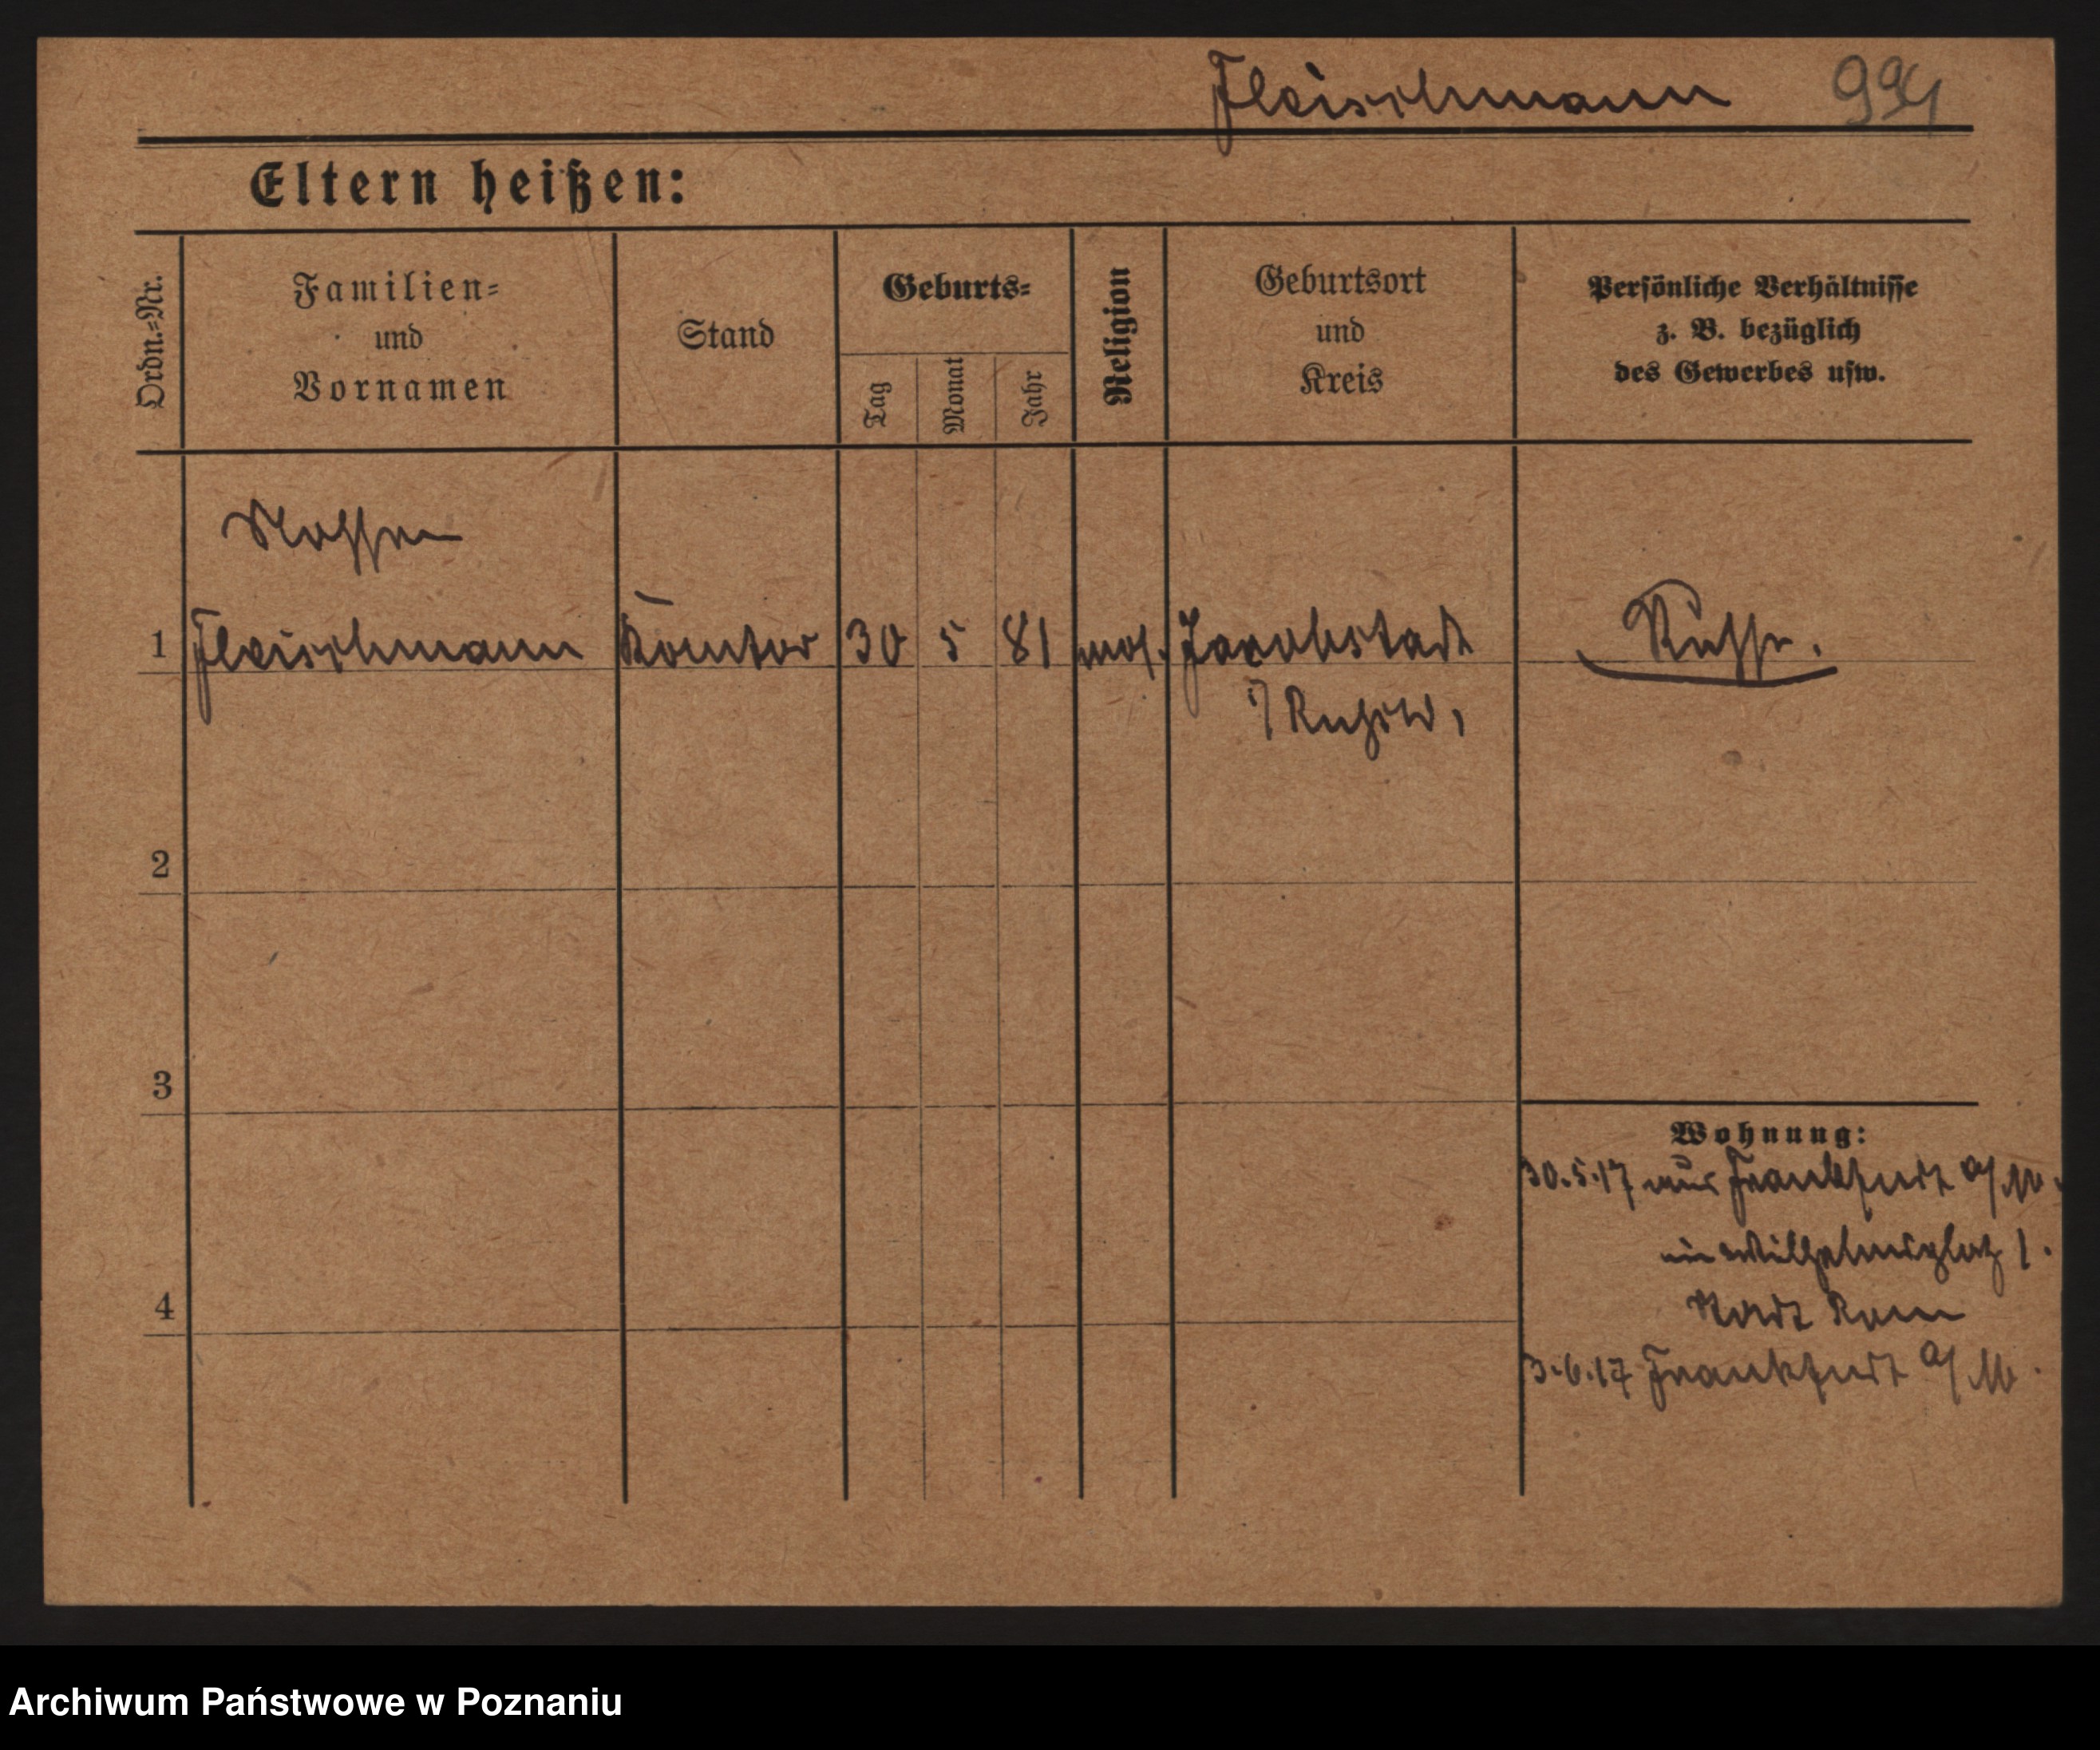 Fleischmann 994
Eltern heißen:
Ordn.=Nr.
Familien=
und
Vornamen
Stand
Geburts=
Tag
Monat
Jahr
Religion
Geburtsort
und
Kreis
Persönliche Verhältnisse
z. B. bezüglich
des Gewerbes usw.
1 Fleischmann Kantor 30 5 81 mos. Jacobstadt
Russe.
2
3
4
Wohnung:
30.5.17 aus Frankfurt a/M.
Wilhelmsplatz 1.
Stadt Rom
3.6.17 Frankfurt a/M.
Archiwum Państwowe w Poznaniu